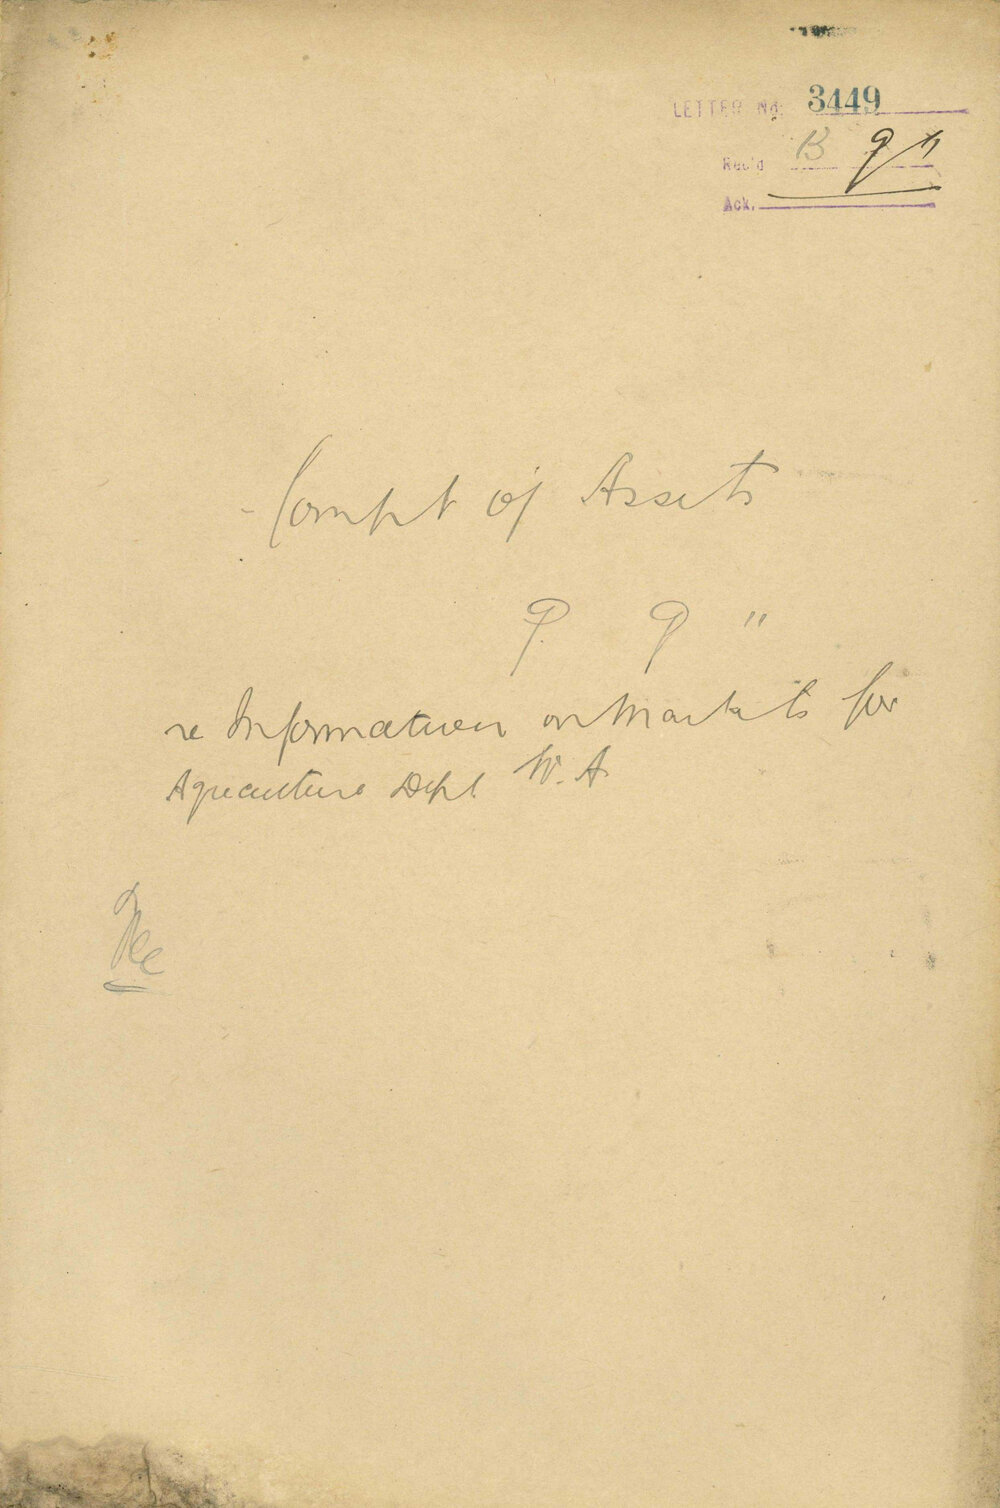 LETTER No. 3449
Rec'd 13 9 11
Ack.
Compt of Assets
9. 9 "
re Information on Markets for
Agriculture Dept W. A